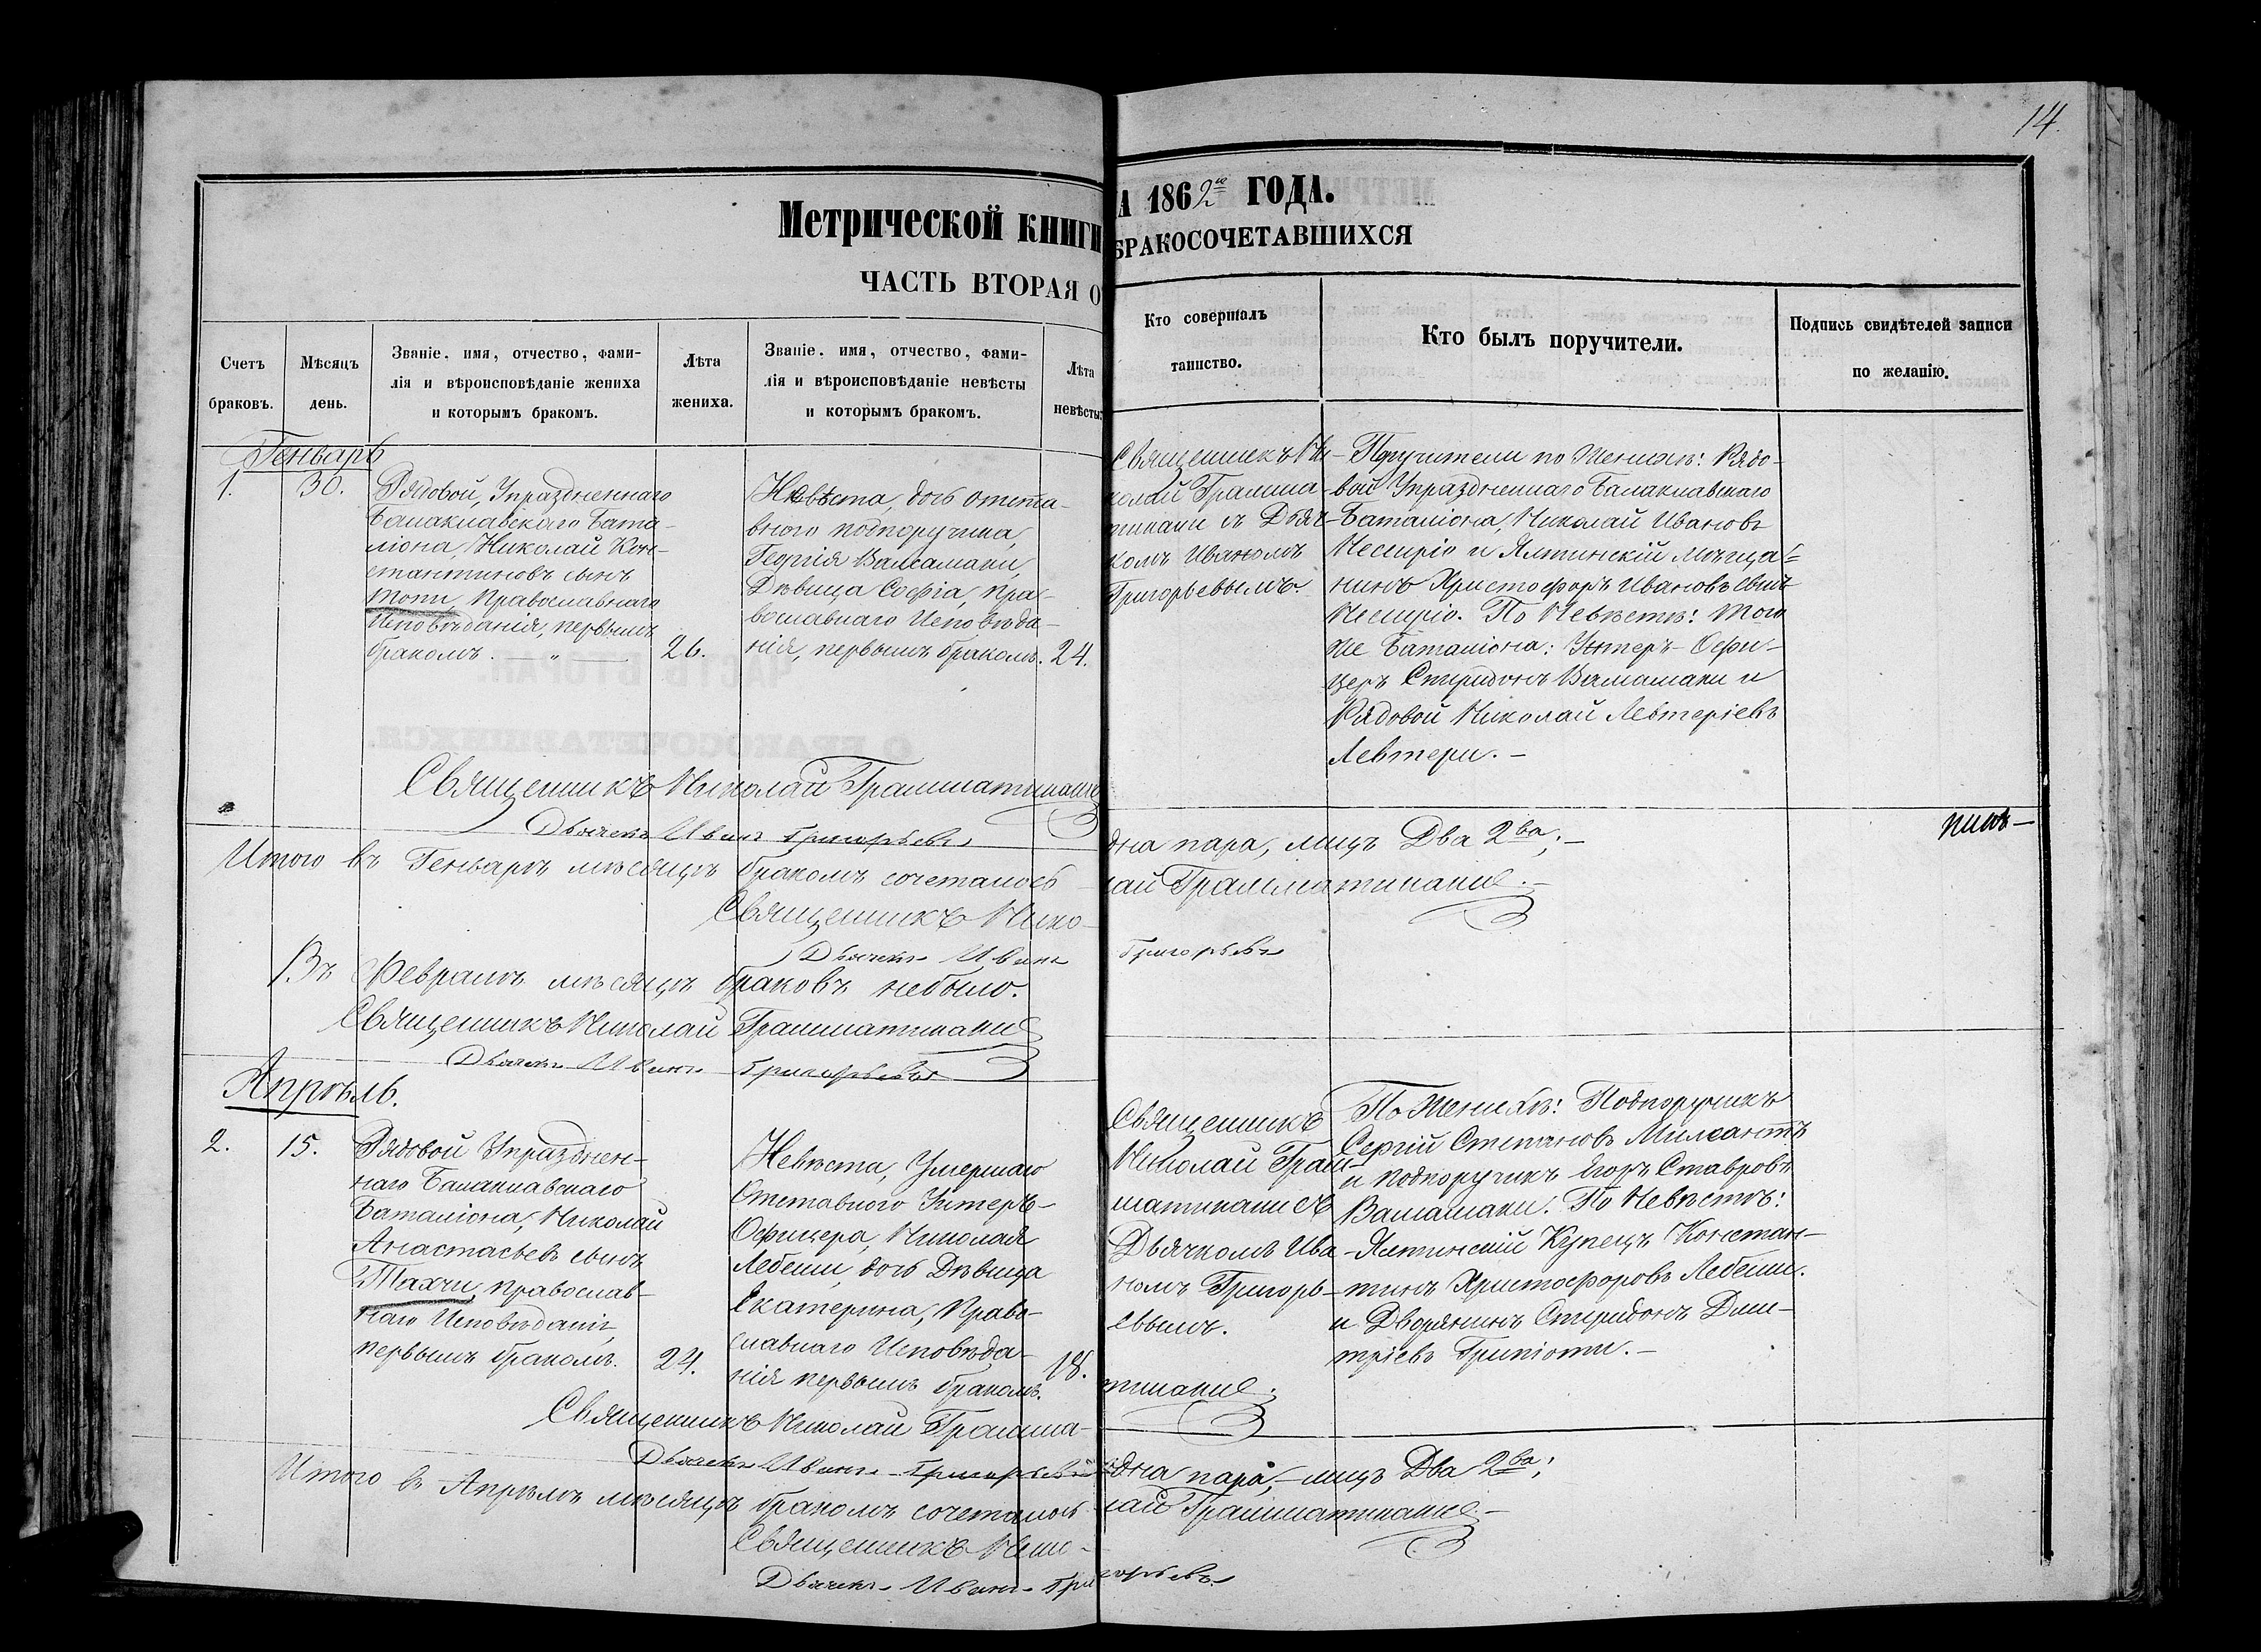 14.
Метрической книги
А 1862го ГОДА.
ЧАСТЬ ВТОРАЯ О
БРАКОСОЧЕТАВШИХСЯ
Счетъ
браковъ.
Мѣсяцъ
день.
Званіе, имя, отчество, фами-
лія и вѣроисповѣданіе жениха
и которымъ бракомъ.
Лѣта
жениха.
Званіе, имя, отчество, фами-
лія и вѣроисповѣданіе невѣсты
и которымъ бракомъ.
Лѣта
невѣсты.
Кто совершалъ
таинство.
Кто былъ поручители.
Подпись свидѣтелей записи
по желанію.
Генварь
1.
30.
Рядовой, Упраздненнаго
Балаклавскаго Бата-
ліона, Николай Кон-
стантиновъ сынъ
Топи, Православнаго
Исповѣданія, первымъ
бракомъ. — „ —
26.
Невѣста, дочь отста-
вного подпоручика,
Георгія
Дѣвица Софія, пра-
вославнаго Исповѣда-
нія, первымъ бракомъ.
24.
Священникъ Ни-
колай Грамма-
тикаки съ Дьяч-
комъ Иваномъ
Григорьевымъ.
Поручители по Женихѣ: Рядо-
вой Упраздненнаго Балаклавскаго
Баталіона, Николай Ивановъ
и Ялтинскій мѣща-
нинъ Христофоръ Ивановъ сынъ
По Невѣстѣ: Того
же Баталіона: Унтеръ-Офи-
церъ Спиридонъ и
Рядовой Николай Левтеріевъ
Левтери. —
Священникъ Николай Грамматикаки
Дьячекъ Иванъ Григорьевъ
Итого въ Генварѣ мѣсяцѣ бракомъ сочеталось
дна пара, лицъ Два 2ва; —
Священникъ Нико-
лай Грамматикаки. —
Дьячекъ Иванъ
Григорьевъ
Въ Февралѣ мѣсяцѣ браковъ небыло.
Священникъ Николай Грамматикаки
Дьячекъ Иванъ Григорьевъ
Апрѣль.
2.
15.
Рядовой Упразднен-
наго Балаклавскаго
Баталіона, Николай
Анастасьевъ сынъ
Тахчи, Православ-
наго Исповѣданія,
первымъ бракомъ.
24.
Невѣста, Умершаго
Отставного Унтеръ-
Офицера, Николая
Лебеши, дочь Дѣвица
Екатерина, Право-
славнаго Исповѣда-
нія первымъ бракомъ.
18.
Священникъ
Николай Грам-
матикаки съ
Дьячкомъ Ива-
номъ Григорь-
евымъ.
По Женихѣ: Подпоручикъ
Сергій Степановъ
и подпоручикъ Егоръ Ставровъ
По Невѣстѣ:
Ялтинскій Купецъ Констан-
тинъ Христофоровъ Лебеши.
и Дворянинъ Спиридонъ Дми-
тріевъ Грипіоти. —
Священникъ Николай Грамма-
тикаки.
Дьячекъ Иванъ Григорьевъ
Итого въ Апрѣлѣ мѣсяцѣ бракомъ сочеталось
дна пара, — лицъ Два 2ва;
Священникъ Нико-
лай Грамматикаки. —
Дьячекъ Иванъ Гри
горьевъ.